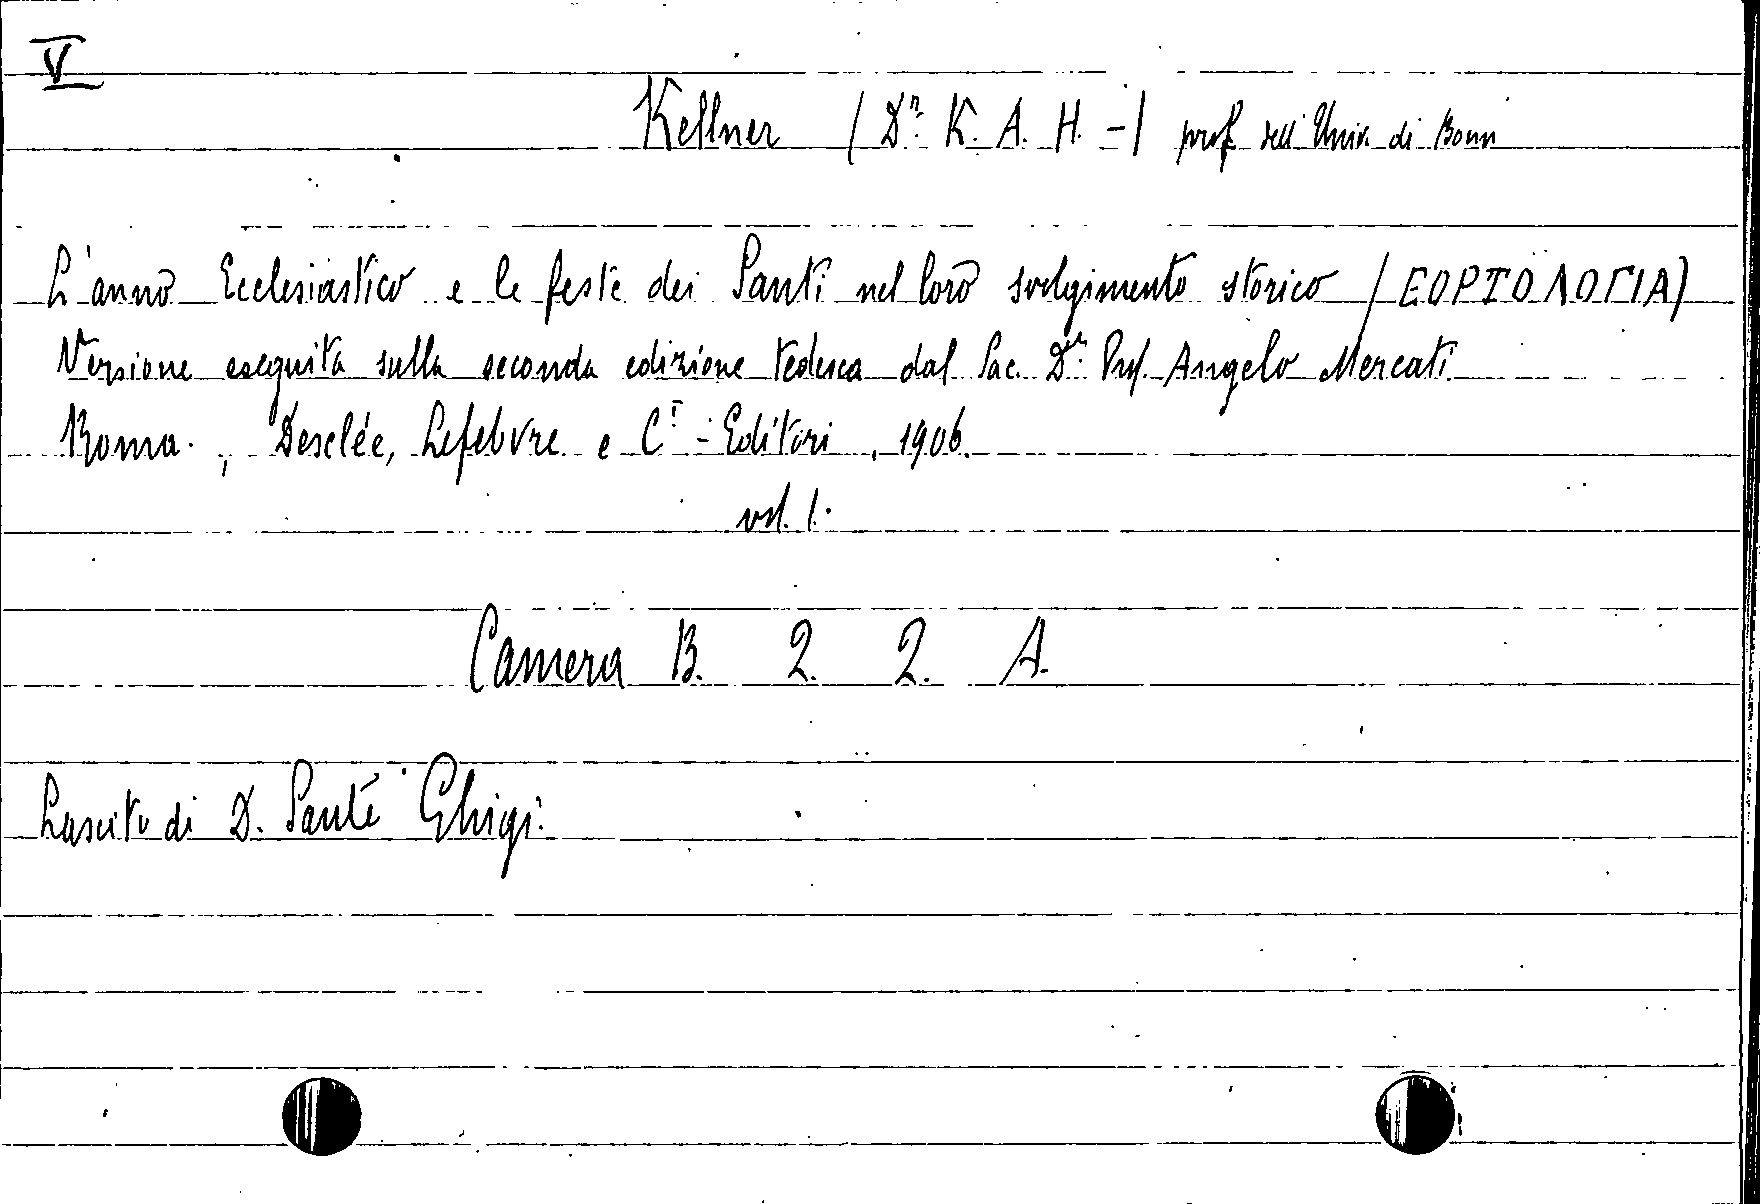 V
Kellner (Dr. K. A. H. -) prof. dell' Univ. di Bonn
L'anno Ecclesiastico e le feste dei Santi nel loro svolgimento storico (ΕΟΡΤΟΛΟΓΙΑ)
Versione eseguita sulla seconda edizione tedesca dal Sac. Dr. Prof. Angelo Mercati
Roma. , Desclée, Lefebvre e Ci - Editori , 1906.
vol. 1.
Camera B. 2. 2. A.
Lascito di D. Sante Ghigi.